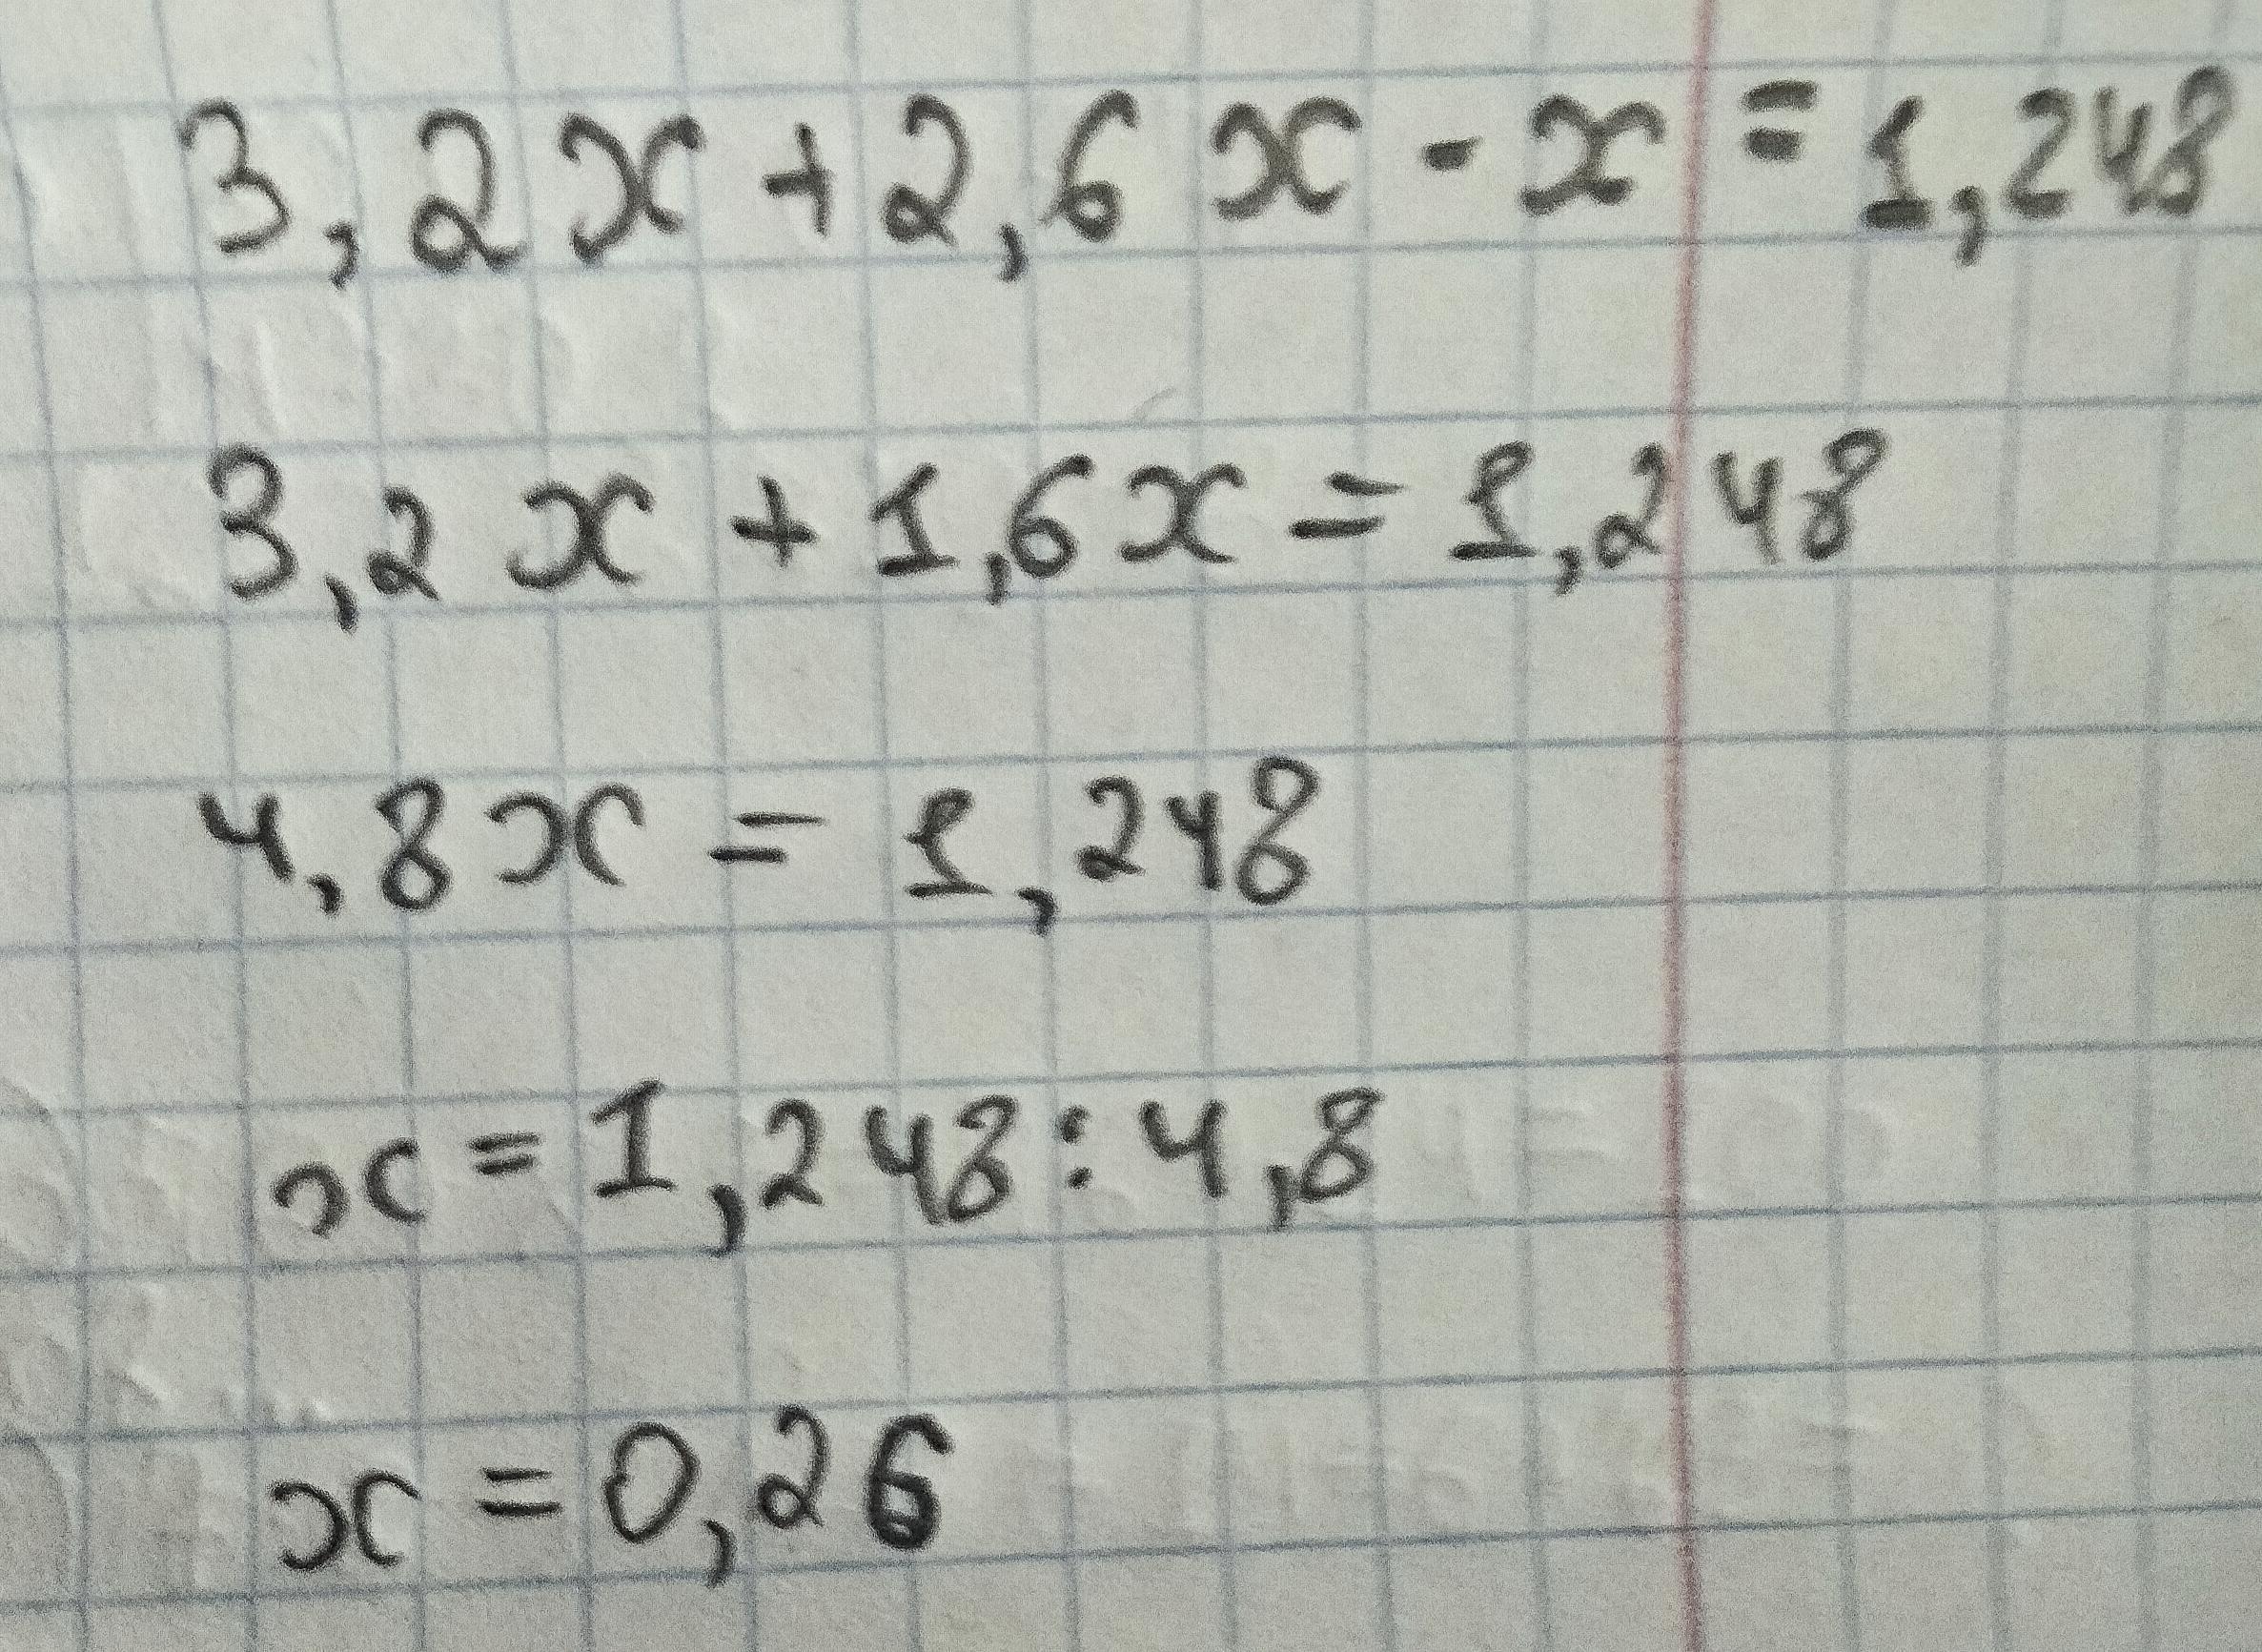 3,2x + 2,6x - x = 1,248
3,2x + 1,6x = 1,248
4,8x = 1,248
x = 1,248 : 4,8
x = 0,26